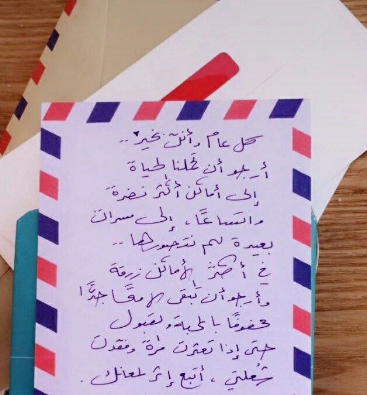 كل عام وأنت بخير..
أرجو أن تحملنا الحياة
إلى أماكن أكثر نضرة
واتساعًا، إلى مسرات
بعيدة لم نتصورها..
في أكثر الأماكن زرقة
وأرجو أن تبقى لامعًا جدًا
محفوفًا بالمحبة والقبول
حتى إذا تعثرت مرة وفقدت
شعلتي، أتبع إثر لمعانك.